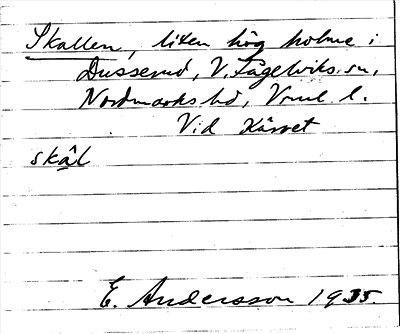 Skallen, liten hög holme i
Dusserud, V. Fågelviks sn,
Nordmarks hd, Vrml. l.
Vid Kärret
skâl
E. Andersson 1935.